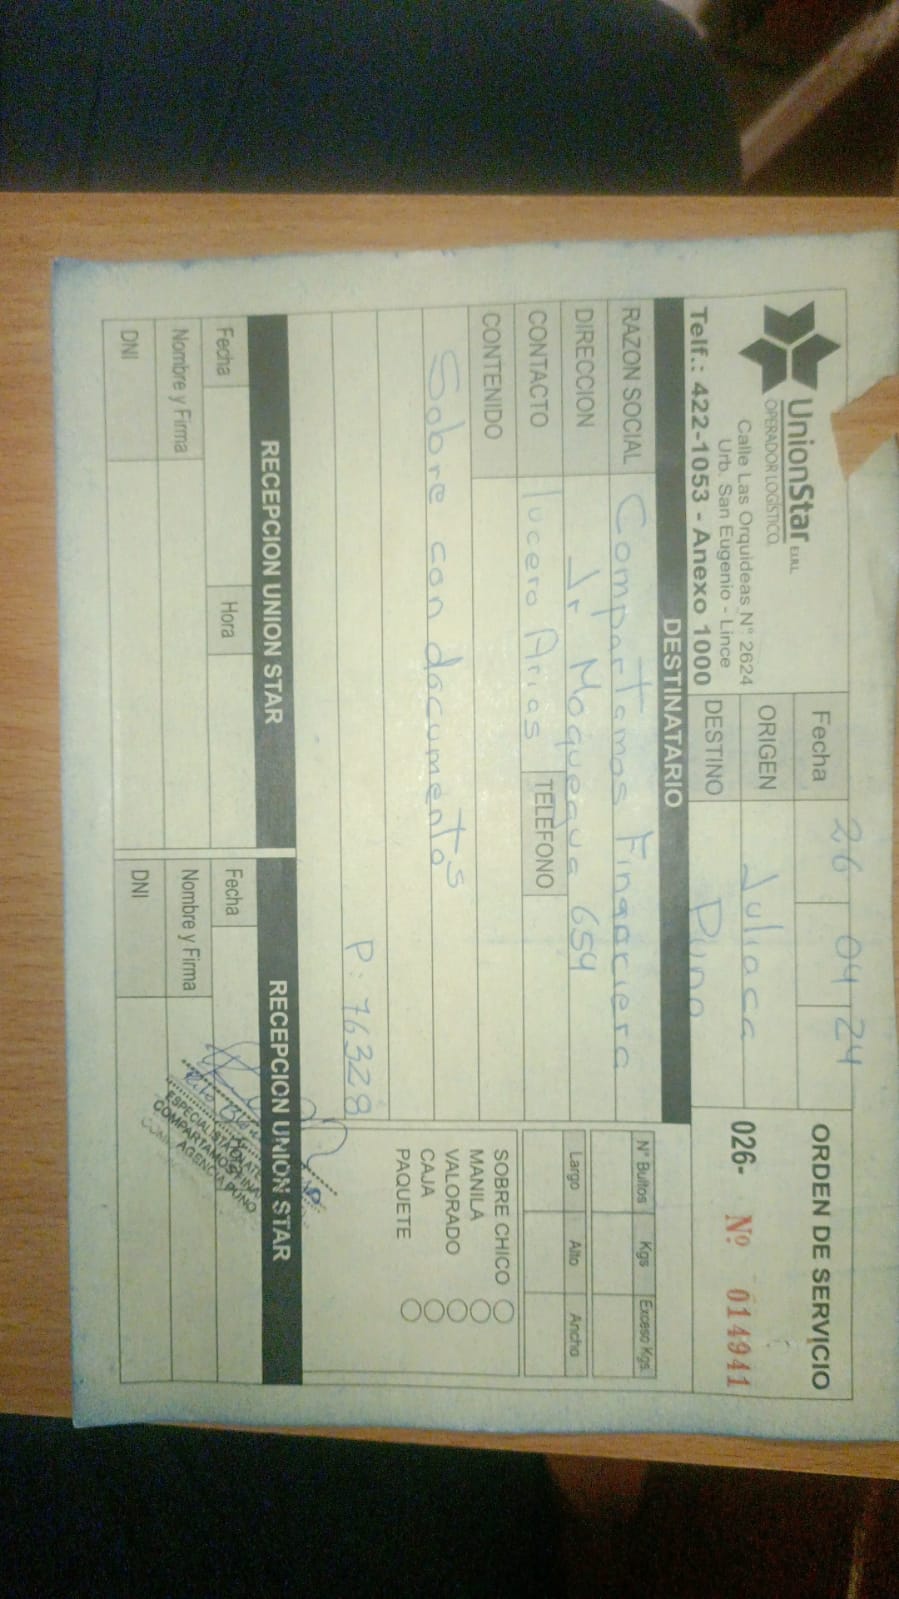 UnionStar E.I.R.L.
OPERADOR LOGÍSTICO
Calle Las Orquideas N° 2624
Urb. San Eugenio - Lince
Telf.: 422-1053 - Anexo 1000
Fecha 26 04 24
ORIGEN Juliaca
DESTINO Puno
ORDEN DE SERVICIO
026- Nº 014941
DESTINATARIO
RAZON SOCIAL Compartamos Financiera
DIRECCION Jr Moquegua 654
CONTACTO lucero Arias TELÉFONO
CONTENIDO
Sobre con documentos
P: 76328
N° Bultos Kgs Exceso Kgs.
Largo Alto Ancho
SOBRE CHICO
MANILA
VALORADO
CAJA
PAQUETE
RECEPCION UNION STAR
Fecha Hora
Nombre y Firma
DNI
RECEPCION UNION STAR
Fecha
Nombre y Firma
DNI
ESPECIALISTA
COMPARTAMOS
AGENCIA PUNO